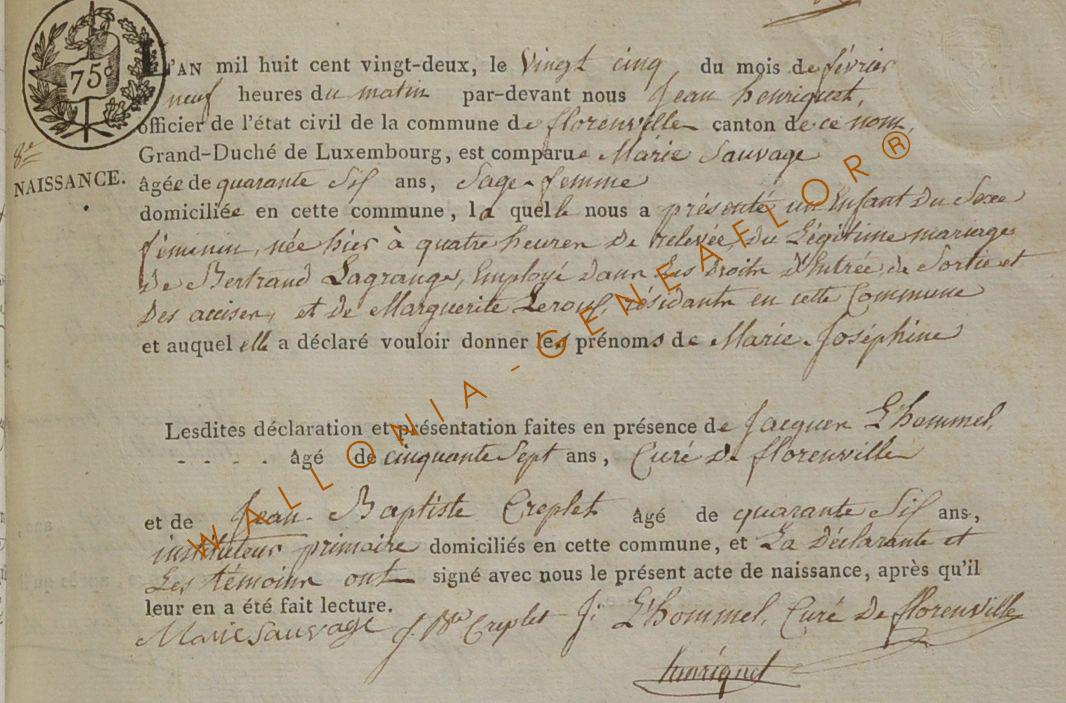 75c
L'AN mil huit cent vingt-deux, le Vingt cinq du mois de février
neuf heures du matin par-devant nous Jean henriquet,
officier de l'état civil de la commune de florenville canton de ce nom,
8e
Grand-Duché de Luxembourg, est comparue Marie Sauvage
NAISSANCE.
âgée de quarante Six ans, Sage-femme
domiciliée en cette commune, la quelle nous a présenté un Enfant du Sexe
féminin, née hier à quatre heures de relevée, du Légitime mariage
de Bertrand Lagrange, Employé dans Les droits d'Entrée, de Sortie et
Des accises, et de Marguerite Leroux, résidants en cette Commune
et auquel elle a déclaré vouloir donner les prénoms de Marie-Joséphine
Lesdites déclaration et présentation faites en présence de Jacques L'hommel,
âgé de cinquante Sept ans, Curé de florenville
et de Jean-Baptiste Creplet âgé de quarante Six ans,
instituteur primaire domiciliés en cette commune, et La Déclarante et
Les témoins ont signé avec nous le présent acte de naissance, après qu'il
leur en a été fait lecture.
Marie Sauvage J. Bte Creplet J. L'hommel, Curé De florenville
henriquet
WALLONIA-GENEAFLOR®